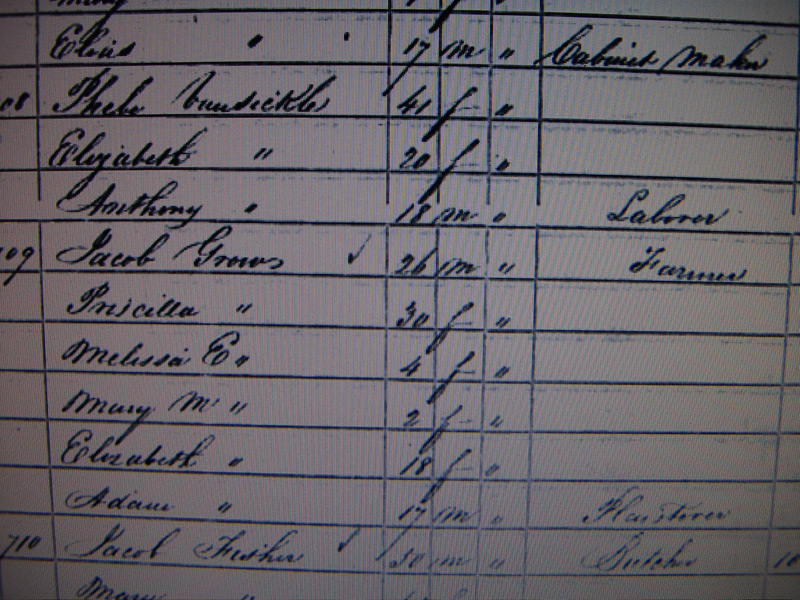 Elias " 17 m " Cabinet Maker
08 Phebe Vansickle 41 f "
Elizabeth " 20 f "
Anthony " 18 m " Laborer
709 Jacob Groves 26 m " Farmer
Priscilla " 30 f "
Melissa E " 4 f "
Mary M " 2 f "
Elizabeth " 18 f "
Adam " 17 m " Plasterer
710 Jacob Fisher 30 m " Butcher 10
Mary " f "